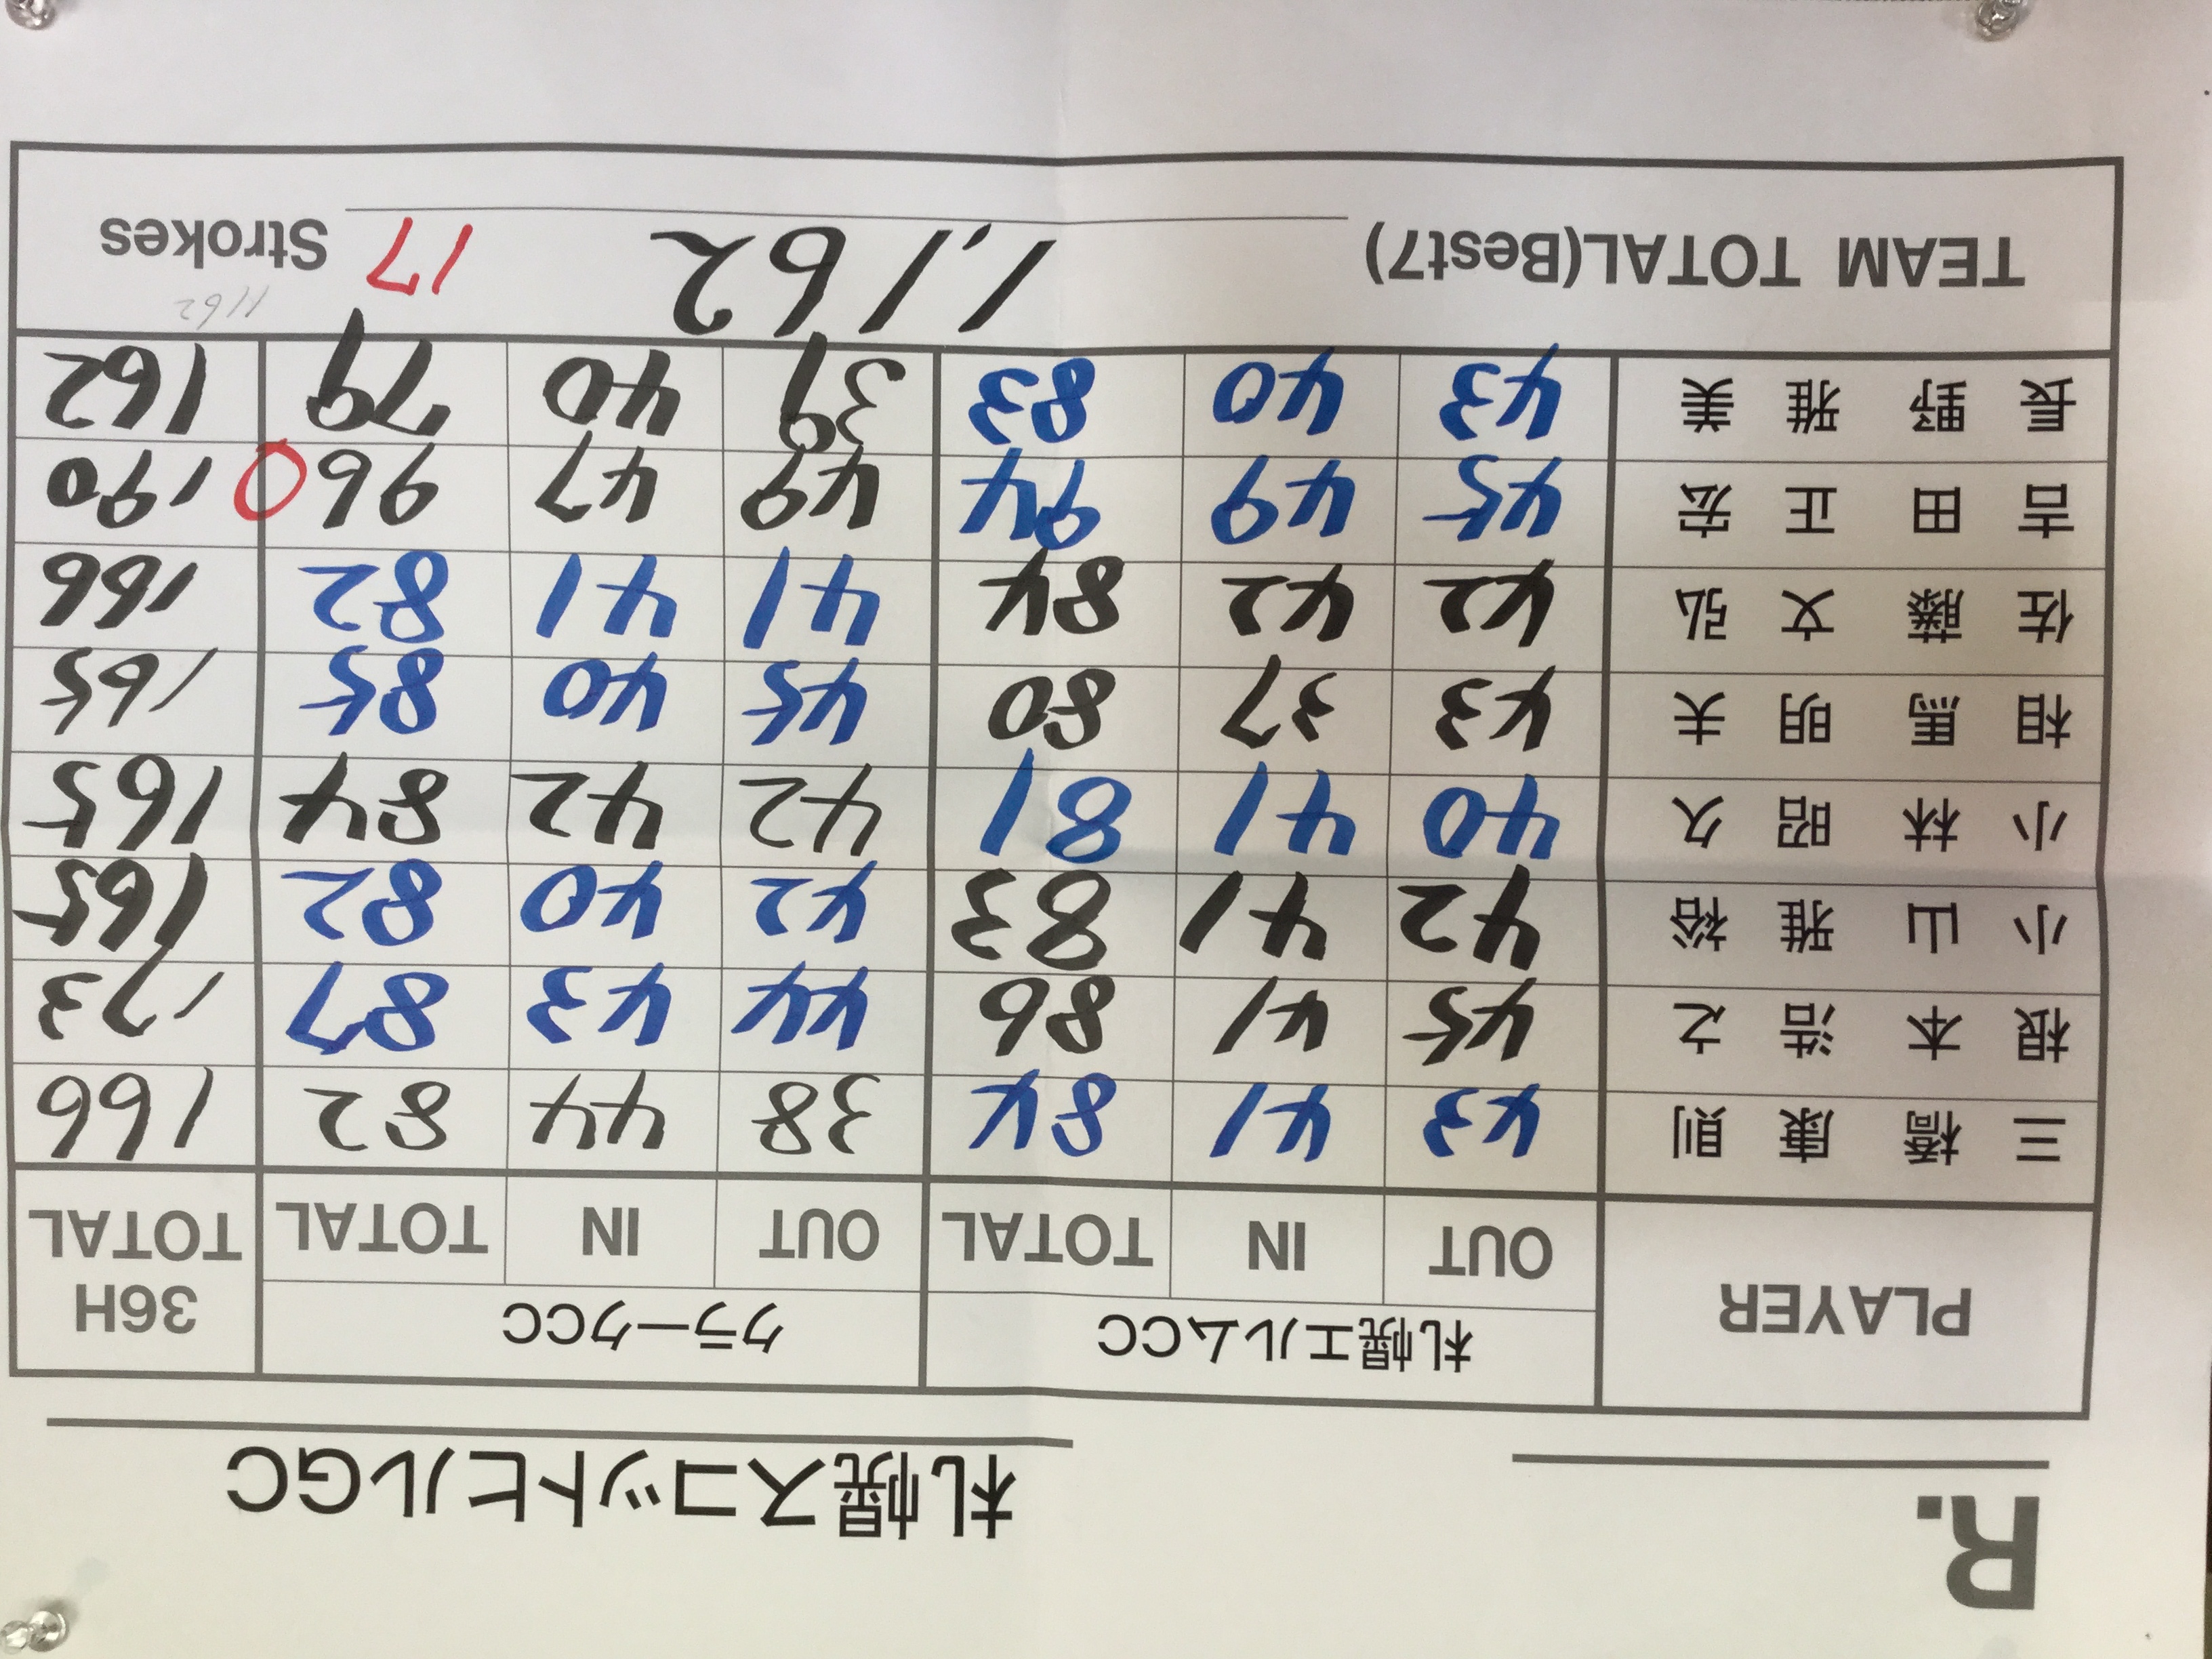 R. 札幌スコットヒルGC
PLAYER 札幌エルムCC クラークCC 36H TOTAL
OUT IN TOTAL OUT IN TOTAL
三橋康則 43 41 84 38 44 82 166
根本浩之 45 41 86 44 43 87 173
小山雅裕 42 41 83 42 40 82 165
小林昭久 40 41 81 42 42 84 165
相馬明夫 43 37 80 45 40 85 165
佐藤文弘 42 42 84 41 41 82 166
吉田正宏 45 49 94 49 47 96 0 190
長野雅美 43 40 83 39 40 79 162
1162
TEAM TOTAL(Best7) 1,162 17 Strokes